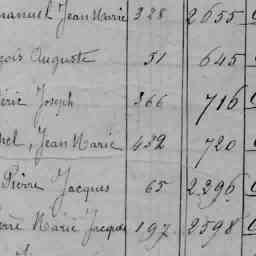 manuel Jean Marie 328 2655
çois Auguste 51 645
déric Joseph 366 716
hel, Jean Marie 432 720
Pierre Jacques 65 2396
erre Marie Jacques 197 2598